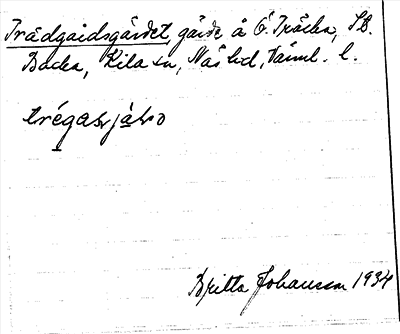 Trädgårdsgärdet, gärde å Ö. Tväcka, St.
Backa, Kila sn, Näs hd, Värml. l.
Britta Johansson 1934